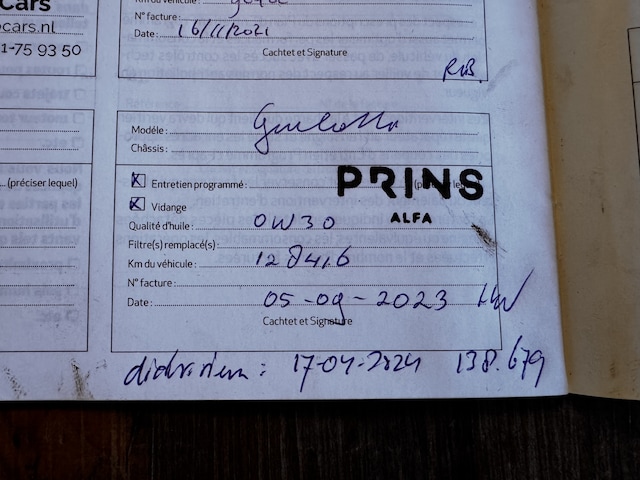 Cars
cars.nl
1-75 93 50
N° facture :
Date : 16/11/2021
Cachet et Signature
RvB.
Modèle : Giulietta
Châssis :
(préciser lequel)
☒ Entretien programmé :
PRINS
ALFA
☒ Vidange
Qualité d'huile : 0W30
Filtre(s) remplacé(s) :
Km du véhicule : 128416
N° facture :
Date : 05-09-2023 HW
Cachet et Signature
17-04-2024 138.679